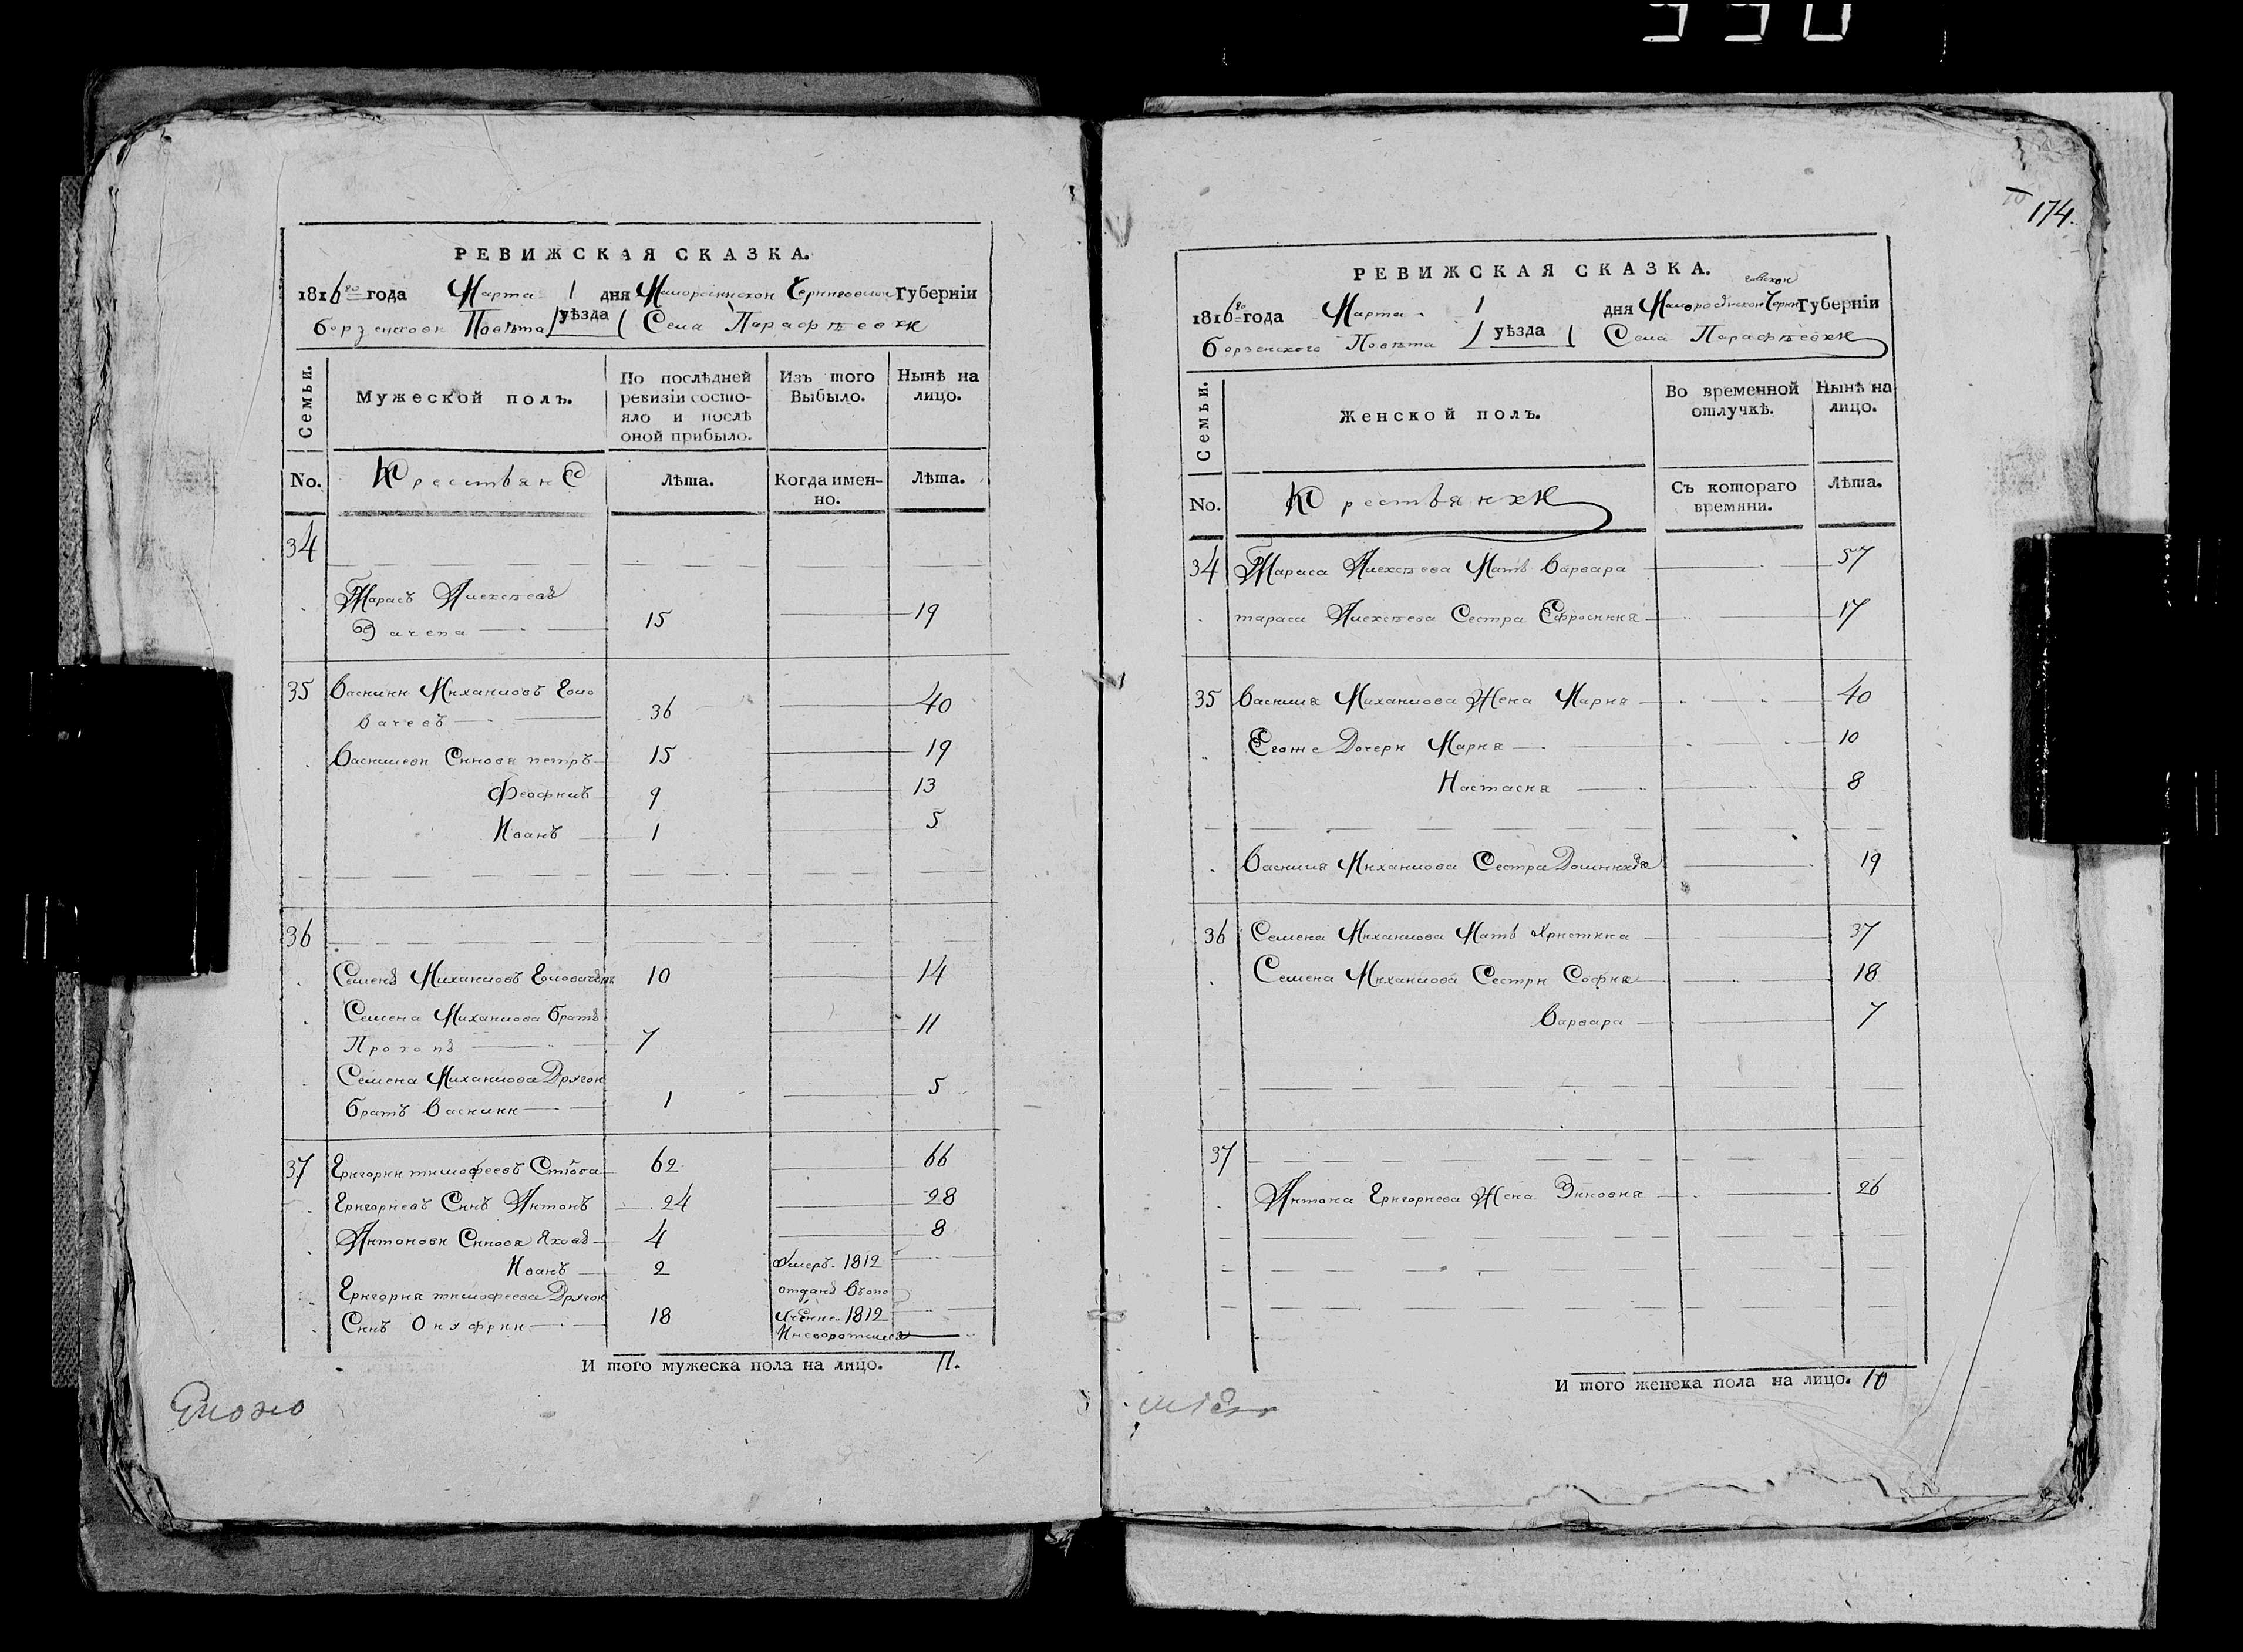 990
РЕВИЖСКАЯ СКАЗКА.
1816го года Марта 1 дня Малоросійской Черниговской Губерніи
борзенского Повѣта уѣзда Села Парафѣевки
Семьи.
Мужеской полъ.
По послѣдней ревизіи состо-
яло и послѣ
оной прибыло.
Изъ того
Выбыло.
Нынѣ на
лицо.
No.
Крестьяне
Лѣта.
Когда имен-
но.
Лѣта.
34
Тарасъ Алексѣевъ
15 19
35 Василий Михаиловъ Голо
вачевъ 36 40
Василиеви Сыновя петръ 15 19
Феофилъ 9 13
Иванъ 1 5
36
Семенъ Михаиловъ Головачевъ 10 14
Семена Михаилова братъ
Прокопъ 7 11
Семена Михаилова Другой
братъ Василий 1 5
37 Григорий тимофеевъ 62 66
Григориевъ Синъ Антонъ 24 28
Антонови Синовя Яковъ 4 8
Иванъ 2 Умеръ. 1812
Григория тимофеева Другой
Синъ Онуфрий 18 отданъ Вопо
лчение 1812
И неворотился
И того мужеска пола на лицо. 11.
174.
РЕВИЖСКАЯ СКАЗКА.
1816го года Марта 1 дня Малоросійской Черниговской Губерніи
борзенского Повѣта уѣзда Села Парафѣевки
Семьи.
Женской полъ.
Во временной
отлучкѣ.
Нынѣ на
лицо.
No.
Крестьянки
Съ котораго
времяни.
Лѣта.
34 Тараса Алексѣева Мать Варвара 57
тараса Алексѣева Сестра Ефросиния 17
35 Василия Михаилова Жена Мария 40
Егоже Дочери Мария 10
Настасия 8
Василия Михаилова Сестра Домникия 19
36 Семена Михаилова Мать Христина 37
Семена Михаилова Сестри София 18
Варвара 7
37
Антона Григориева Жена Зиновия 26
И того женска пола на лицо. 10